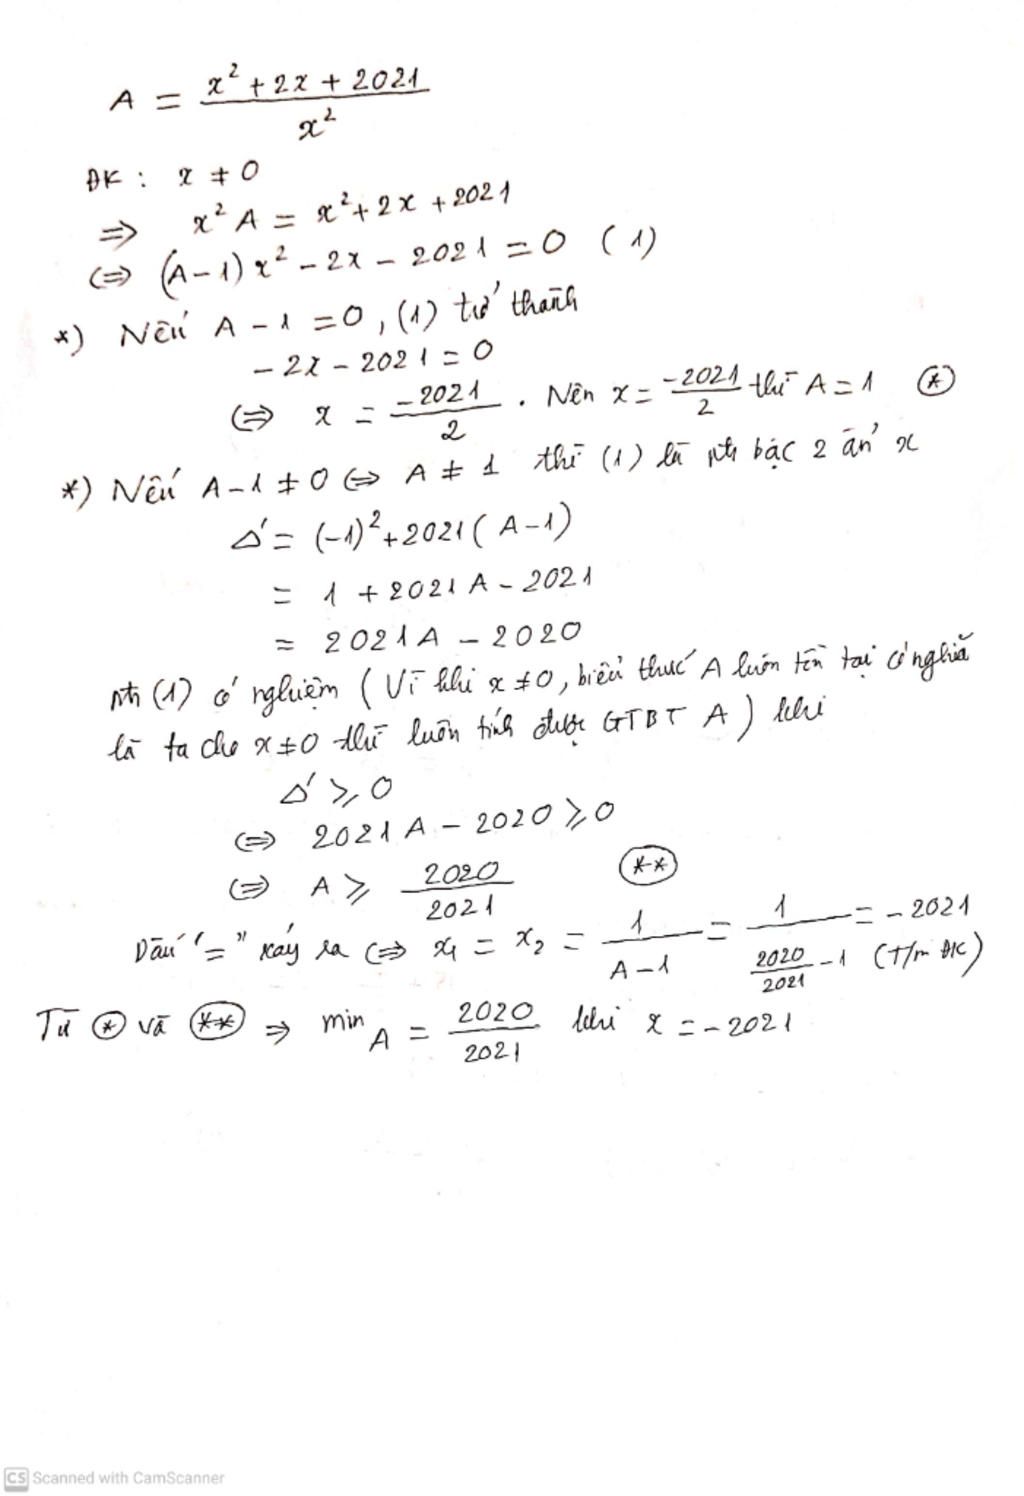 A = \frac{x^2 + 2x + 2021}{x^2}
ĐK : x ≠ 0
⇒ x^2 A = x^2 + 2x + 2021
⇔ (A-1)x^2 - 2x - 2021 = 0 (1)
*) Nếu A - 1 = 0, (1) trở thành
- 2x - 2021 = 0
⇔ x = \frac{-2021}{2} . Nên x = \frac{-2021}{2} thì A = 1 (*)
*) Nếu A - 1 ≠ 0 ⇔ A ≠ 1 thì (1) là pt bậc 2 ẩn x
Δ' = (-1)^2 + 2021(A-1)
= 1 + 2021A - 2021
= 2021A - 2020
pt (1) có nghiệm (Vì khi x ≠ 0, biểu thức A luôn tồn tại có nghĩa
là ta cho x ≠ 0 thì luôn tính được GTBT A) khi
Δ' ≥ 0
⇔ 2021A - 2020 ≥ 0
⇔ A ≥ \frac{2020}{2021} (**)
Dấu "=" xảy ra ⇔ x_1 = x_2 = \frac{1}{A-1} = \frac{1}{\frac{2020}{2021} - 1} = -2021 (T/m ĐK)
Từ (*) và (**) ⇒ min A = \frac{2020}{2021} khi x = -2021
CS Scanned with CamScanner